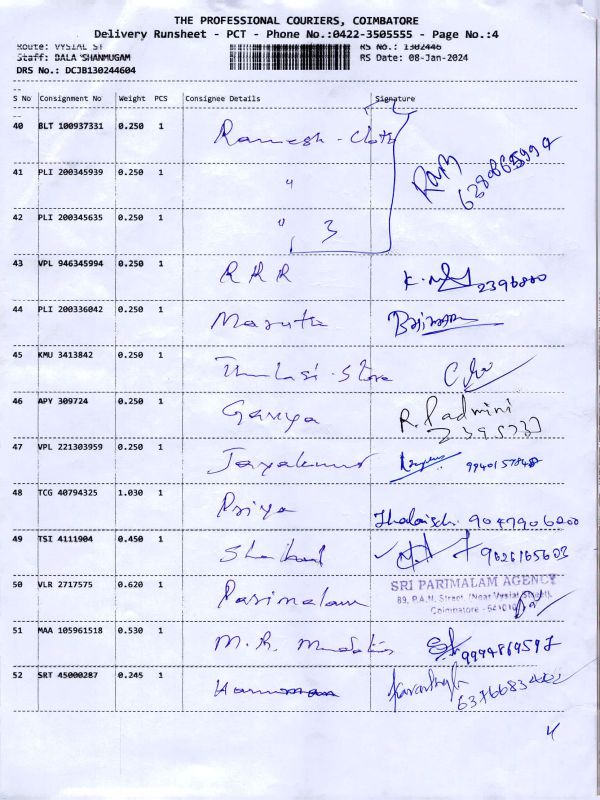 THE PROFESSIONAL COURIERS, COIMBATORE
Delivery Runsheet - PCT - Phone No.:0422-3505555 - Page No.:4
Route: VYSIAL ST RS No.: 1302446
Staff: BALA SHANMUGAM RS Date: 08-Jan-2024
DRS No.: DCJB130244604
S No Consignment No Weight PCS Consignee Details Signature
40 BLT 100937331 0.250 1 Ramesh - Cloth
41 PLI 200345939 0.250 1 "
42 PLI 200345635 0.250 1 " 3
43 VPL 946345994 0.250 1 R K R
44 PLI 200336042 0.250 1
45 KMU 3413842 0.250 1 Thulasi - Store
46 APY 309724 0.250 1 R. Padmini
47 VPL 221303959 0.250 1 Jayakumar
48 TCG 40794325 1.030 1 Priya 9047906000
49 TSI 4111904 0.450 1
50 VLR 2717575 0.620 1 Parimalam SRI PARIMALAM AGENCY
89, P.A.N. Street, (Near Vysial Street),
Coimbatore - 641010
51 MAA 105961518 0.530 1 M. R.
52 SRT 45000287 0.245 1
4